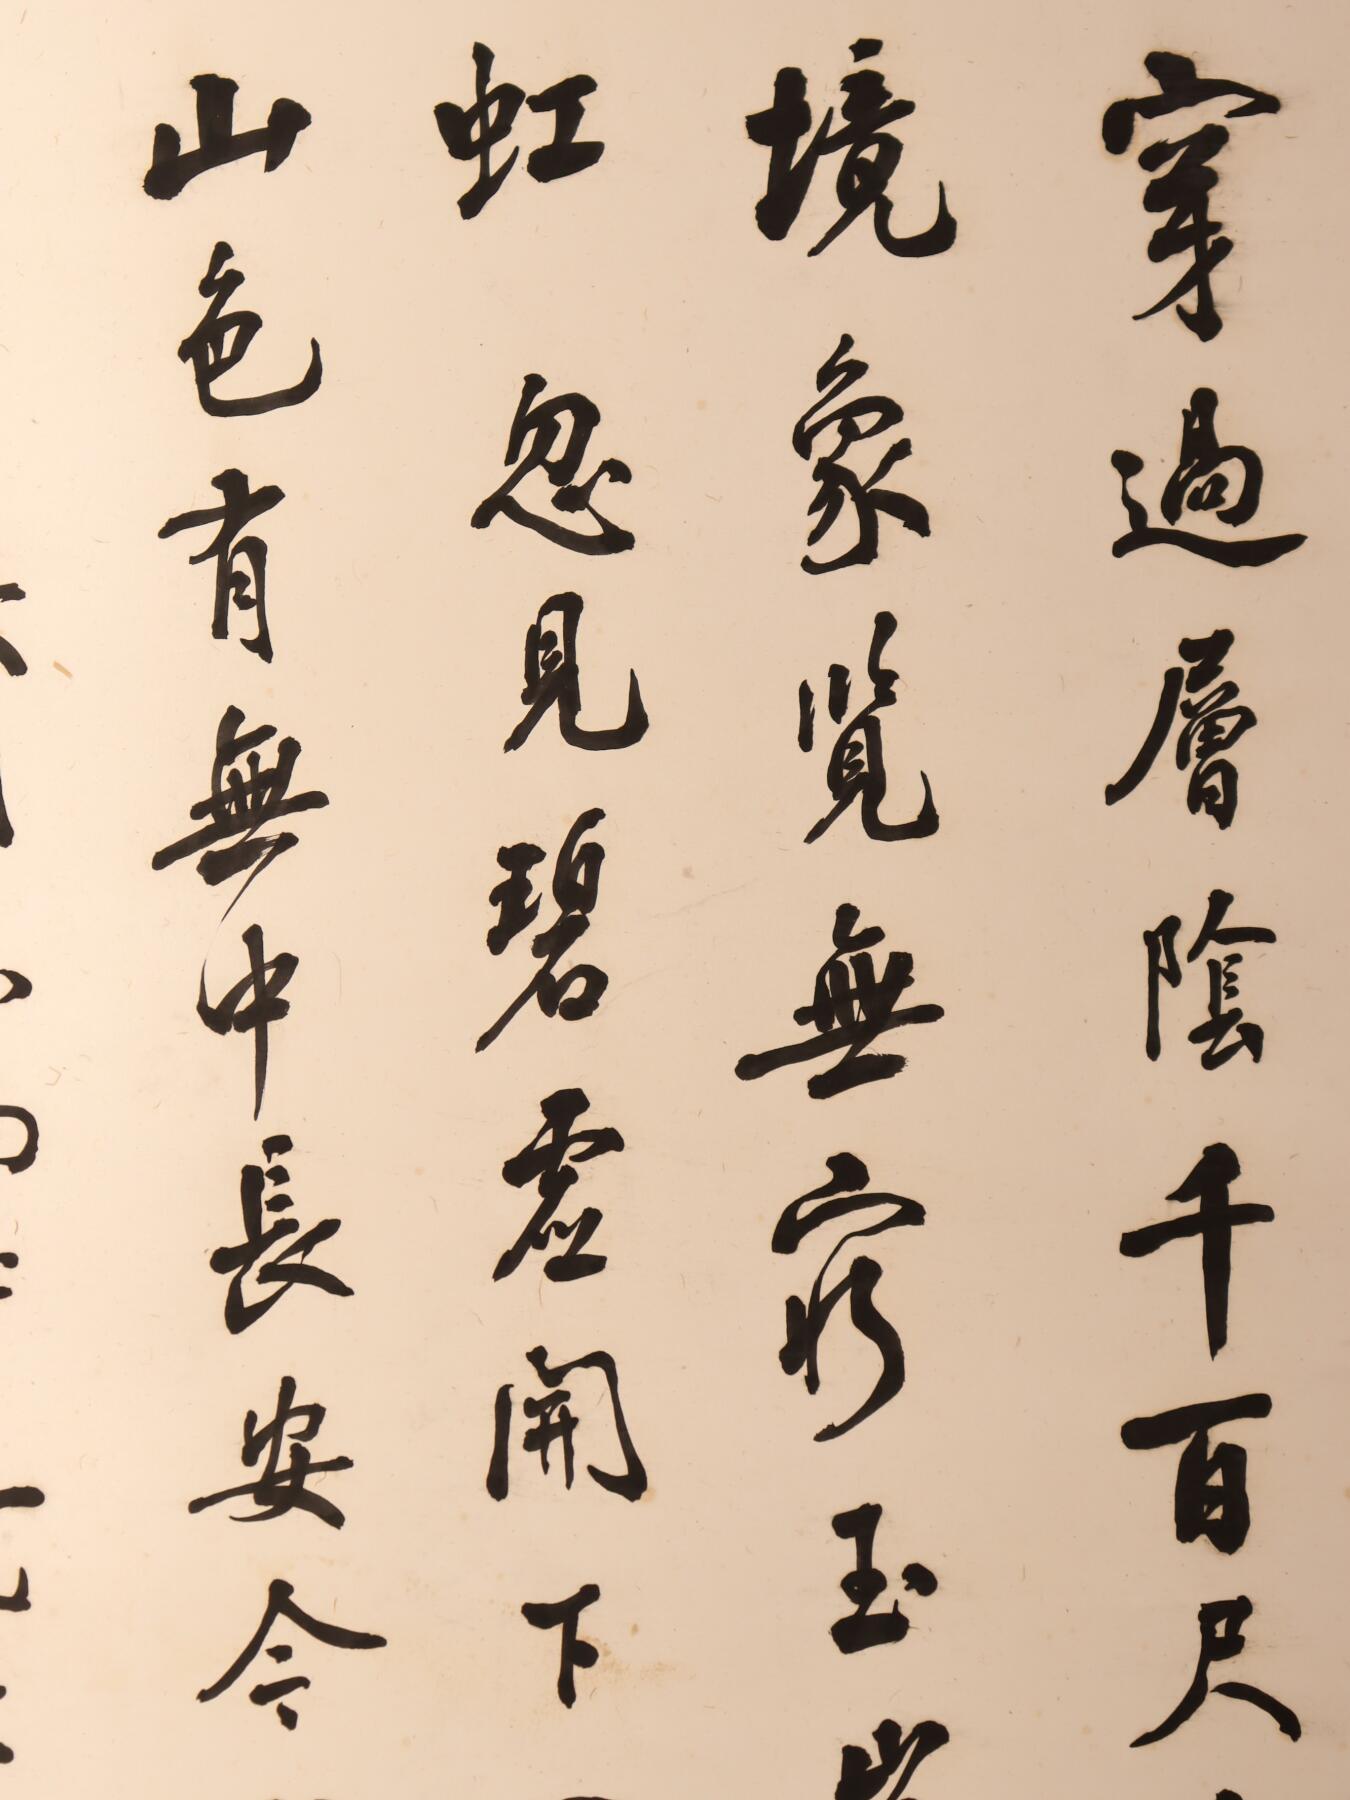 穿過層陰千百尺
境象覽無窮玉
虹忽見碧虛開下
山色有無中長安令